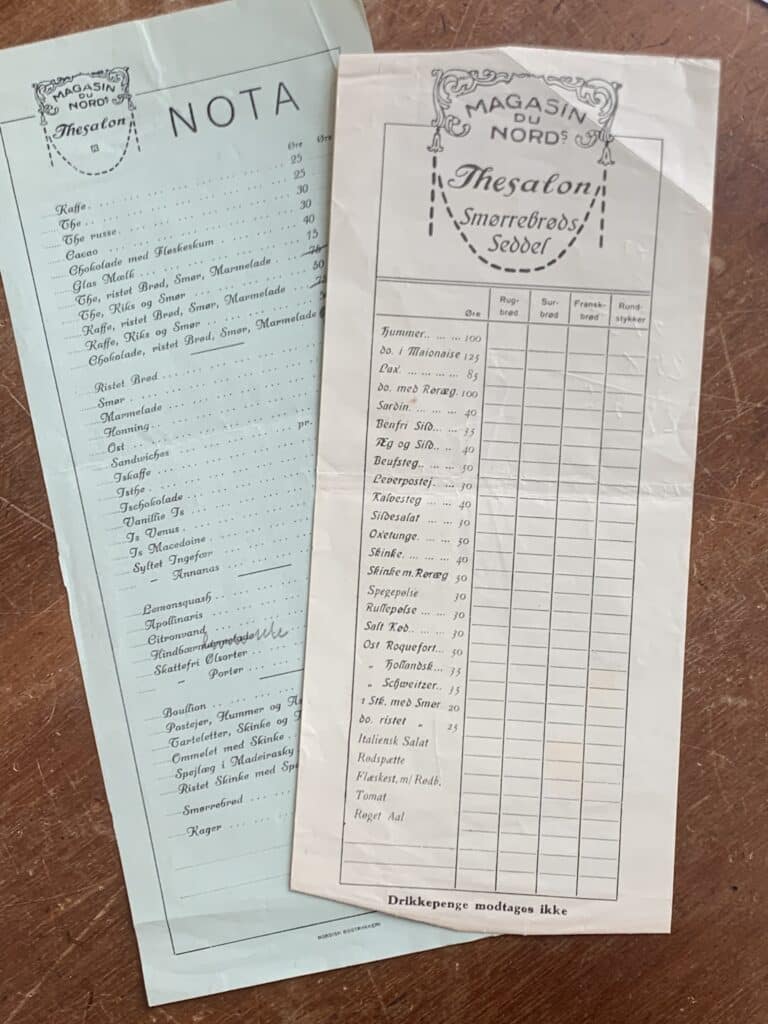 MAGASIN
DU
NORDS
Thesalon
NOTA
Øre Øre
Kaffe 25
The 25
The russe 30
Cacao 30
Chokolade med Fløskeskum 40
Glas Mælk 15
The, ristet Brød, Smør, Marmelade 75
The, Kiks og Smør 50
Kaffe, ristet Brød, Smør, Marmelade
Kaffe, Kiks og Smør
Chokolade, ristet Brød, Smør, Marmelade
Ristet Brød
Smør
Marmelade
Honning
Ost
Sandwiches pr.
Iskaffe
Isthe
Ischokolade
Vanille Is
Is Venus
Is Macedoine
Syltet Ingefær
– Annanas
Lemonsquash
Apollinaris
Citronvand
Skattefri Ølsorter
– Porter
Bouillon
Postejer, Hummer og
Tarteletter, Skinke og
Ommelet med Skinke
Spejlæg i Madeirasky
Ristet Skinke med
Smørrebrød
Kager
NORDISK BOGTRYKKERI
MAGASIN
DU
NORDS.
Thesalon
Smørrebrøds
Seddel
Øre Rug-brød Sur-brød Fransk-brød Rund-stykker
Hummer.. ... ... 100
do. i Maionaise 125
Lax. ... ... ... 85
do. med Røræg. 100
Sardin. ... ... 40
Benfri Sild... ... 35
Æg og Sild.. ... 40
Beufsteg.. ... 50
Leverpostej.. ... 30
Kalvesteg ... ... 40
Sildesalat ... ... 30
Oxetunge. ... ... 50
Skinke. ... ... 40
Skinke m. Røræg 50
Spegepølse 30
Rullepølse ... ... 30
Salt Kød.. ... ... 30
Ost Roquefort... 50
„ Hollandsk... 35
„ Schweitzer.. 35
1 Stk. med Smør 20
do. ristet „ 25
Italiensk Salat
Rødspætte
Flæskest. m/ Rødb.
Tomat
Røget Aal
Drikkepenge modtages ikke